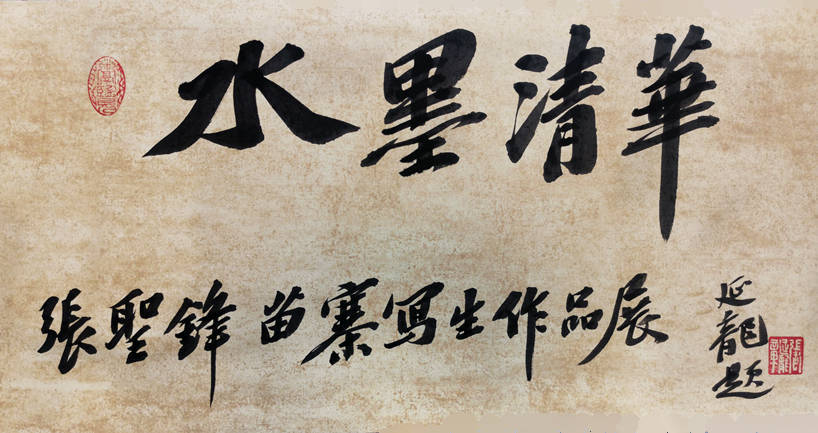 水墨清華
張聖鋒 苗寨寫生作品展
延龍題